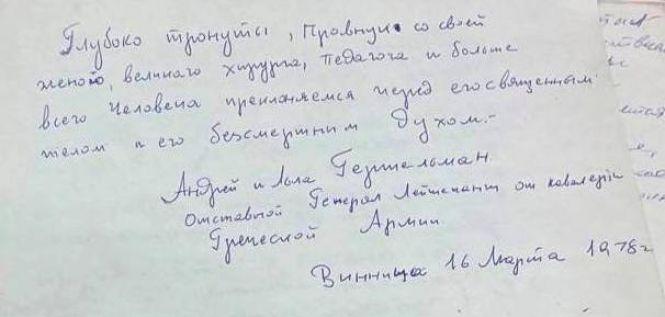 Глубоко тронуты, Правнук со своей
женой, великаго хирурга, педагога и больше
всего Человека преклоняемся перед его священным
телом и его безсмертным Духом.-
Андрей и Гершельман
Отставной Генерал Лейтенант от кавалерии
Греческой Армии.
Винница 16 Марта 1978г